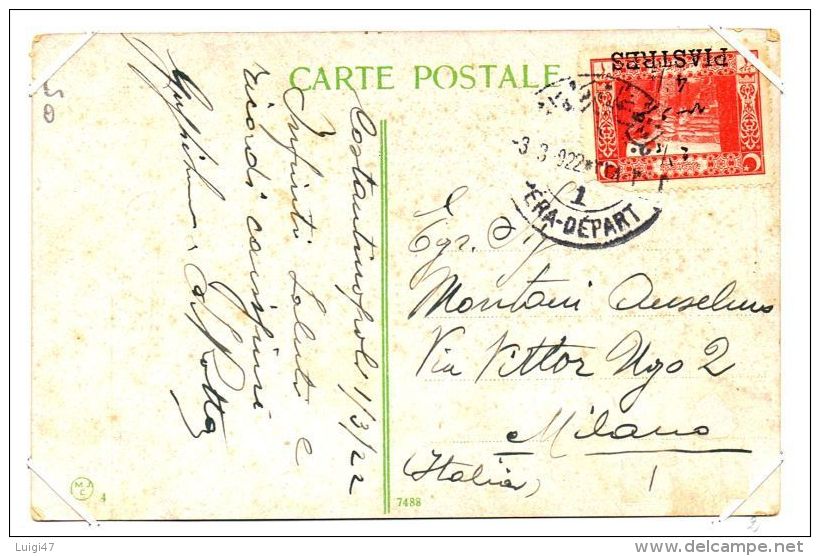 CARTE POSTALE
PIASTRES
4 ½
-3 3 922*
1
ERA-DÉPART
Costantinopoli 1/3/22
Infiniti saluti e
ricordi carissimi
Rotta
Egr. Sig
Montani Anselmo
Via Vittor Ugo 2
Milano
(Italia)
M.J.C.
4
7488
Luigi47
www.delcampe.net